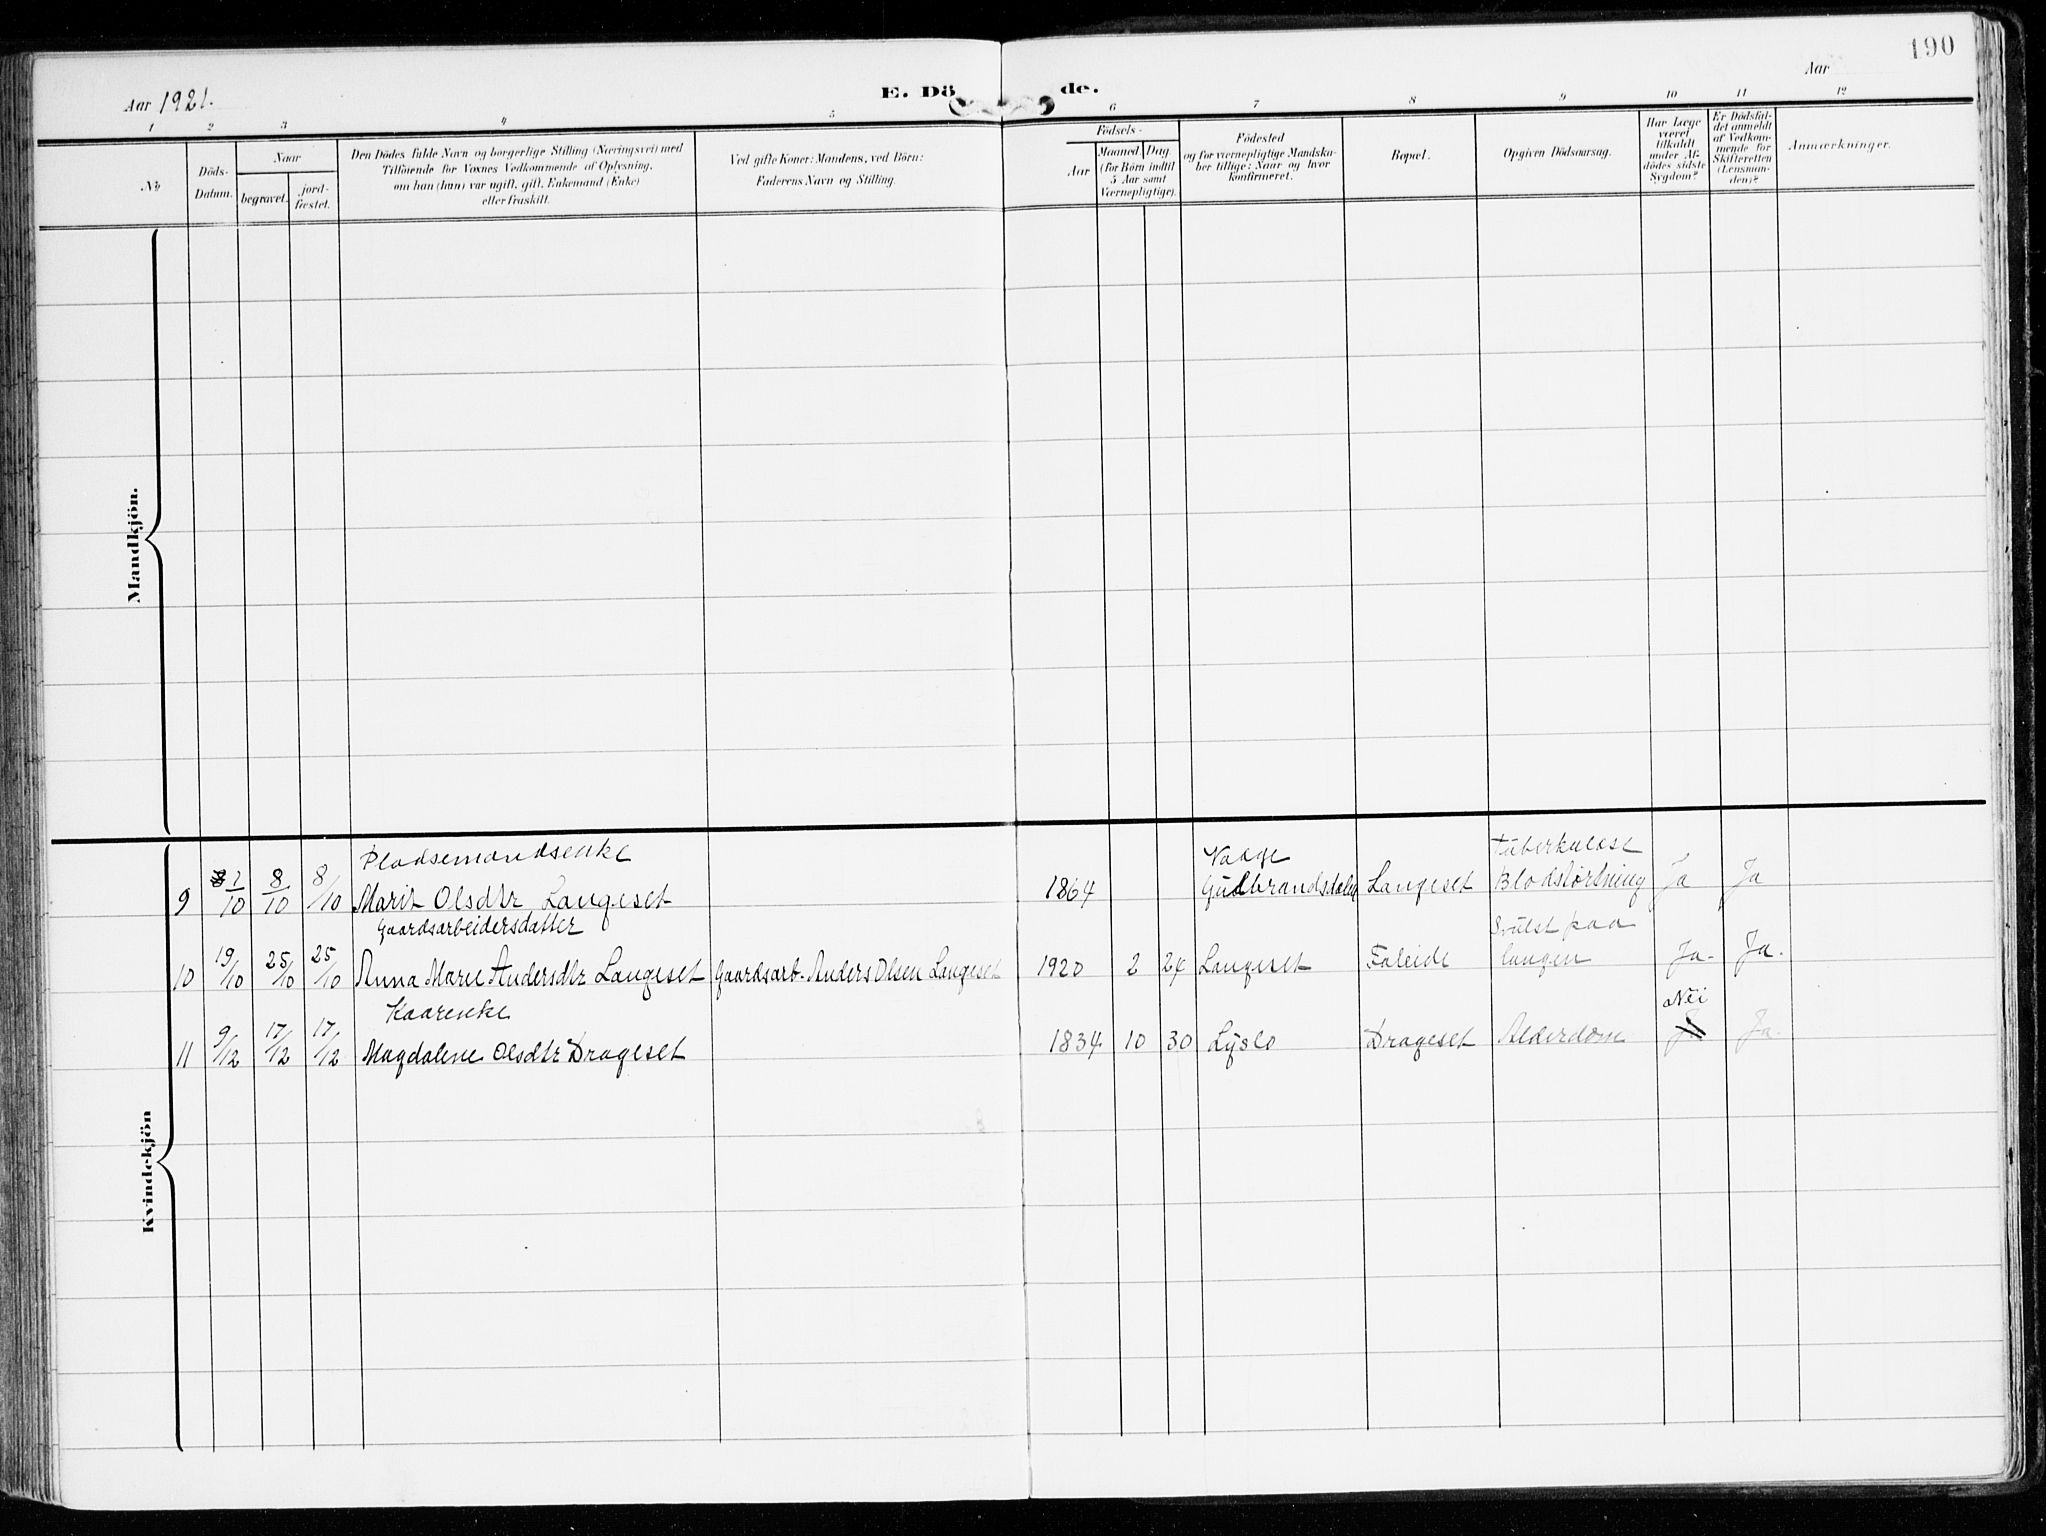 190
Aar 1921.
E. Dö de.
Aar
1 2 3 4 5 6 7 8 9 10 11 12
No
Döds-
Datum.
Naar
begravet.
jord-
fæstet.
Den Dödes fulde Navn og borgerlige Stilling (Næringsvei) med
Tilföiende for Voxnes Vedkommende af Oplysning,
om han (hun) var ugift, gift, Enkemand (Enke)
eller fraskilt.
Ved gifte Koner: Mandens, ved Börn:
Faderens Navn og Stilling.
Födsels-
Aar
Maaned. Dag
(for Börn indtil
5 Aar samt
Værnepligtige).
Födested
og for værnepligtige Mandska-
ber tillige: Naar og hvor
konfirmeret.
Bopæl.
Opgiven Dödsaarsag.
Har Læge
været
tilkaldt
under Af-
dödes sidste
Sygdom?
Er Dödsfal-
det anmeldt
af Vedkom-
mende for
Skifteretten
(Lensman-
den)?
Anmærkninger.
Mandkjön.
Kvindekjön
Pladsemandsenke Vaage Tuberkuløse
9 1/10 8/10 8/10 Marit Olsdtr Langeset 1864 Gudbrandsdalen Langeset Blodstørtning Ja Ja
Gaardsarbeidersdatter Svulst paa
10 19/10 25/10 25/10 Anna Marie Andersdtr Langeset Gaardsarb. Anders Olsen Langeset 1920 2 24 Langeset Faleide lungen Ja. Ja.
Kaarenke Nei
11 9/12 17/12 17/12 Magdalene Olsdtr Drageset 1834 10 30 Lyslo Drageset Alderdom Ja.